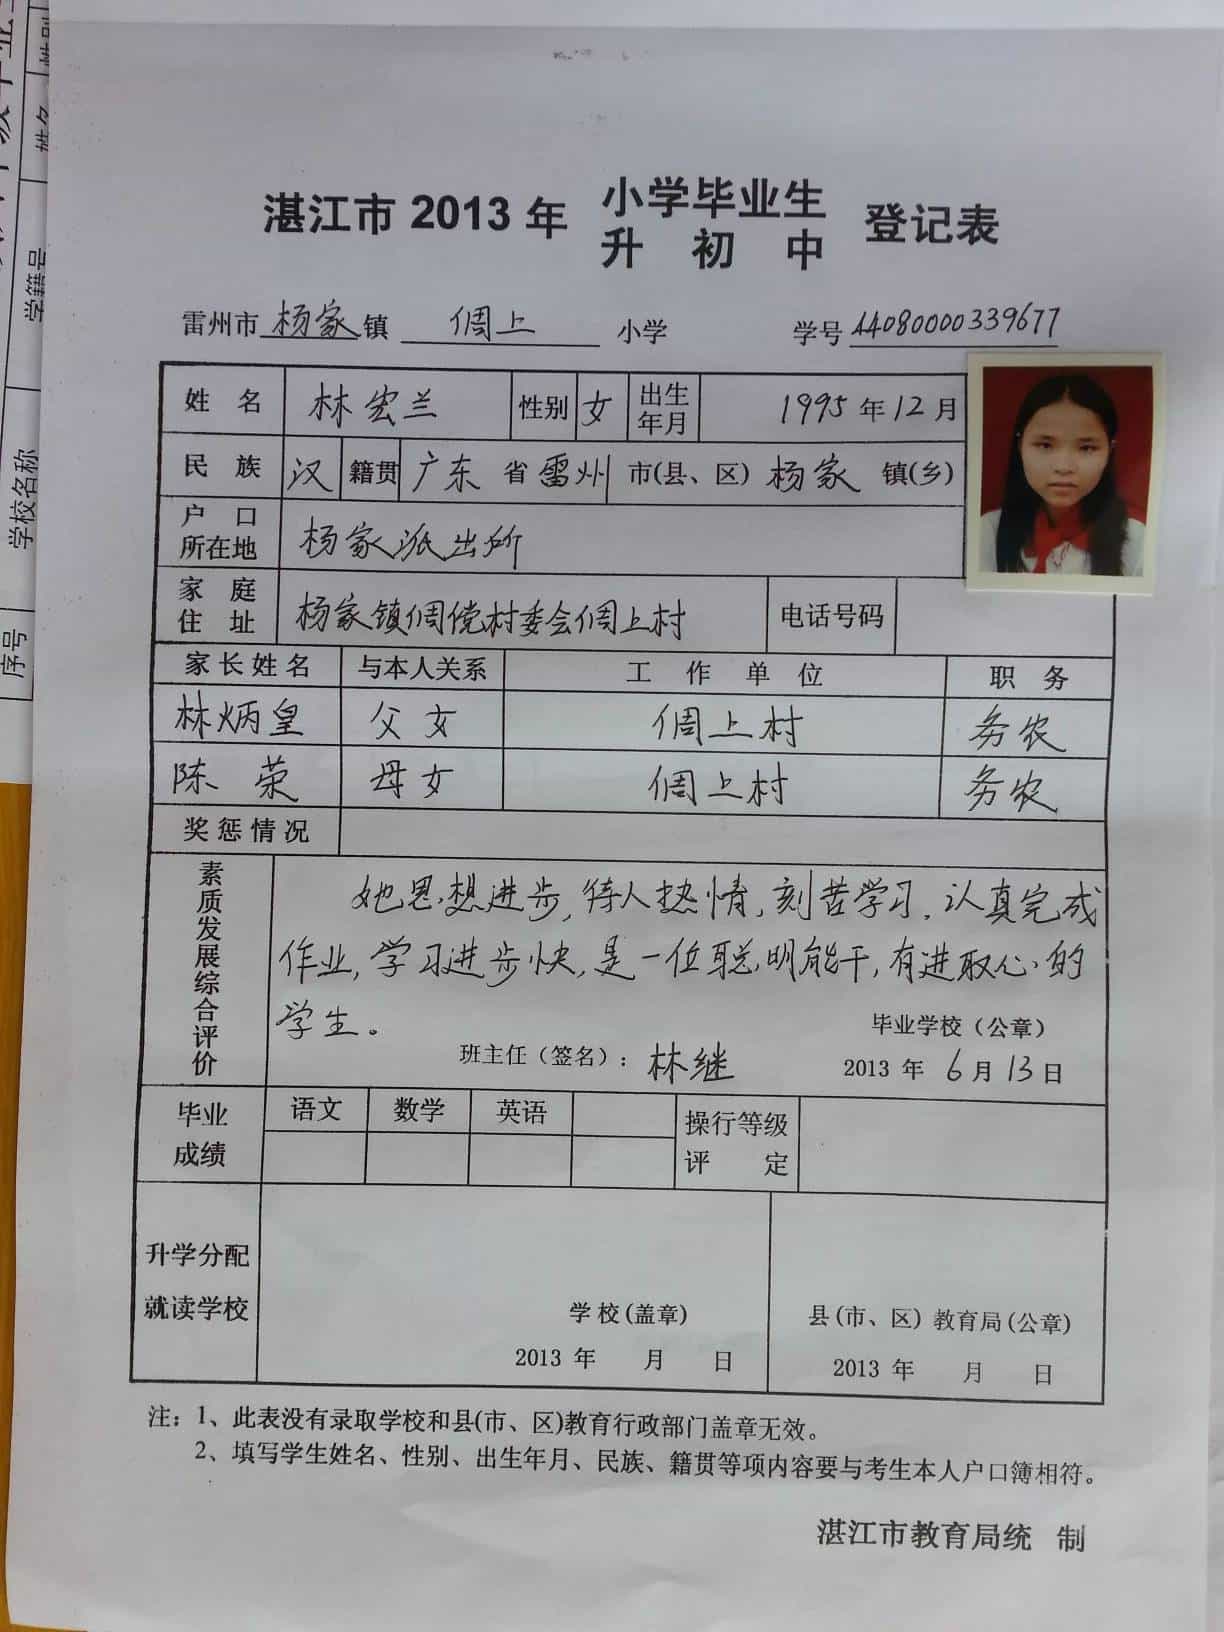 湛江市 2013 年 小学毕业生 登记表
升初中
雷州市 杨家 镇 倜上 小学 学号 44080000339677
姓名 林宏兰 性别 女 出生年月 1995 年 12 月
民族 汉 籍贯 广东 省 雷州 市(县、区) 杨家 镇(乡)
户口所在地 杨家派出所
家庭住址 杨家镇倜傥村委会倜上村 电话号码
家长姓名 与本人关系 工作单位 职务
林炳皇 父女 倜上村 务农
陈荣 母女 倜上村 务农
奖惩情况
素质发展综合评价
她思想进步,待人热情,刻苦学习,认真完成
作业,学习进步快,是一位聪明能干,有进取心的
学生。
毕业学校（公章）
班主任（签名）: 林继 2013 年 6 月 13 日
毕业成绩 语文 数学 英语 操行等级评定
升学分配
就读学校
学校(盖章) 县(市、区) 教育局(公章)
2013 年 月 日 2013 年 月 日
注: 1、此表没有录取学校和县(市、区)教育行政部门盖章无效。
2、填写学生姓名、性别、出生年月、民族、籍贯等项内容要与考生本人户口簿相符。
湛江市教育局统 制
序号 学校名称 学籍号 姓名 性别